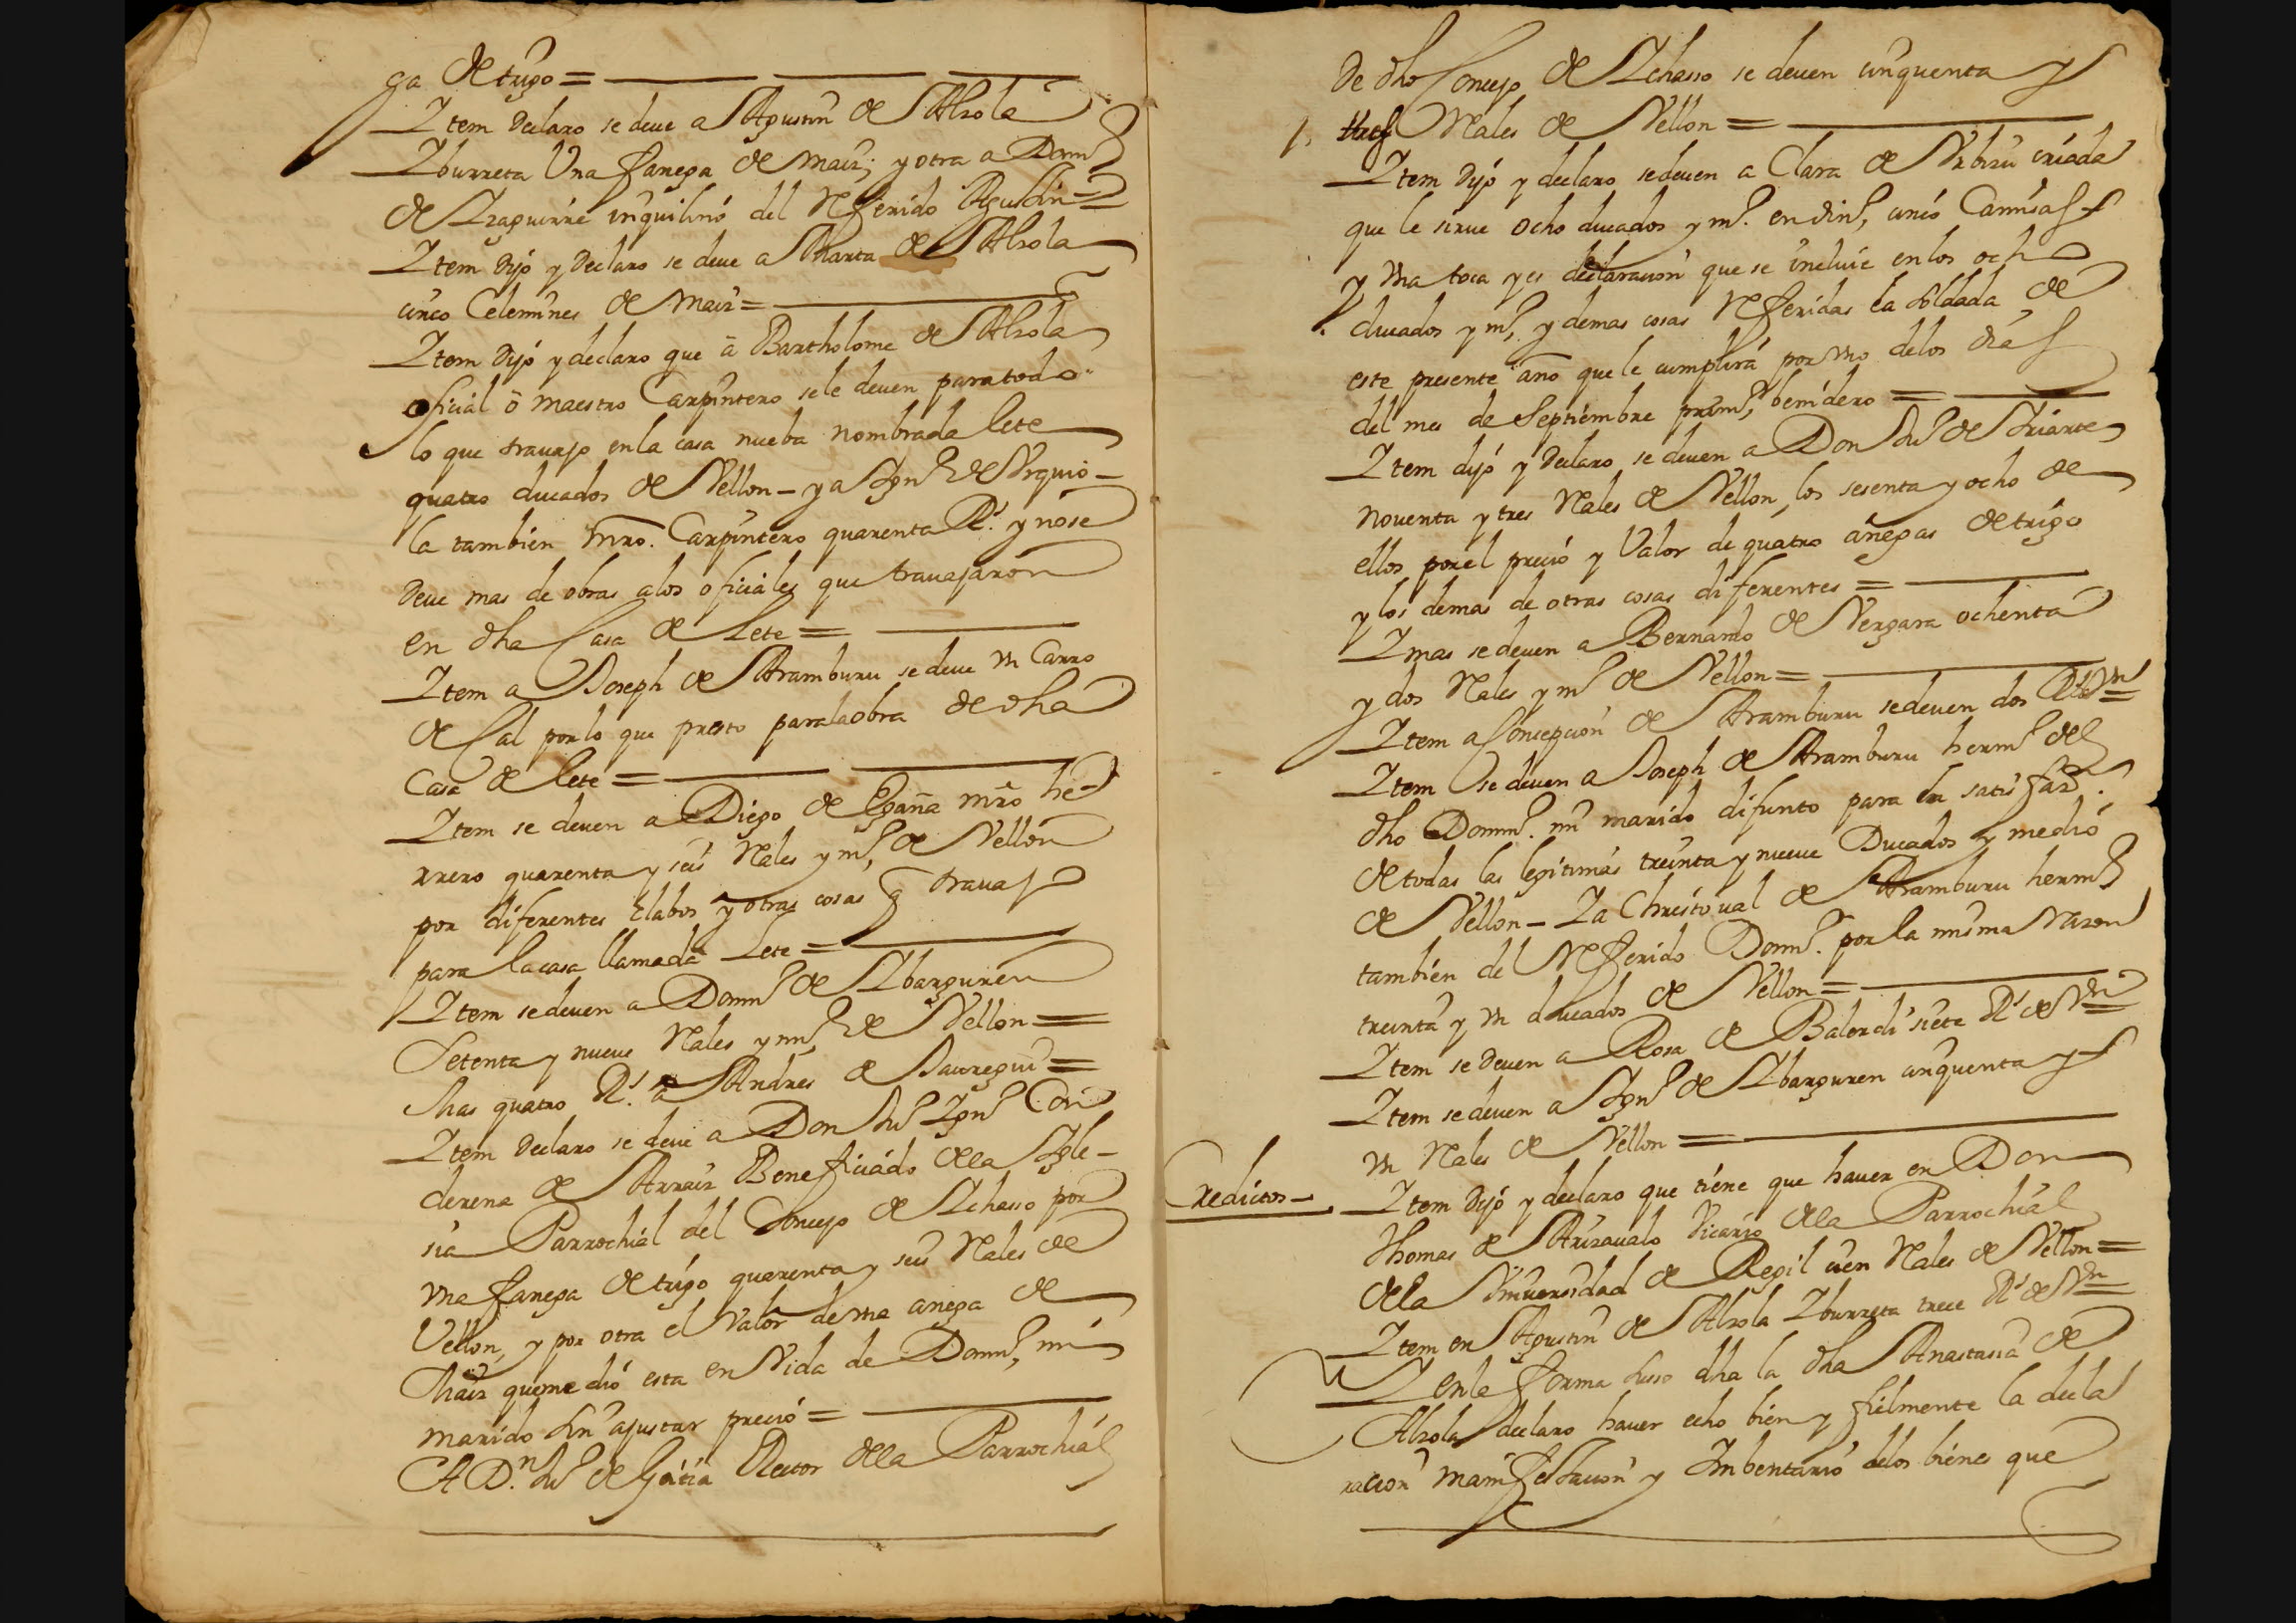 ga de trigo =
Item declaro se deve a Agustin de Alsola
Iburreta Una fanega de maiz; y otra a Domin.º
de Izaguirre inquilino del Referido Agustin =
Item dijo y declaro se deve a Maria de Alsola
cinco Celemines de maiz =
Item dijo y declaro que â Bartholome de Alsola
oficial ô maestro Carpintero se le deven para todo
lo que travajo en la casa nueba nombrada lete
quatro ducados de Vellon - y a Ign.º de Urquio -
la tambien Mro. Carpintero quarenta R.s y no se
deve mas de obras a los oficiales que travajaron
en dha Casa de Lete =
Item a Joseph de Aramburu se deve Vn Carro
de Cal por lo que presto para la obra de dha
Casa de lete =
Item se deven a Diego de Egaña mr̃o he-
rrero quarenta y seis Reales y m.º de Vellon
por diferentes Clabos y otras cosas q̃ travajo
para la casa llamada Lete =
Item se deven a Domin.º de Ibarguren
Setenta y nueve Reales y m.º de Vellon =
Mas quatro R.s a Andres de Jauregui =
Item declaro se deve a Don Ju.º Ign.º Cor
derena de Arraiz Beneficiado de la Igle -
sia Parrochial del Concejo de Ichasso por
Vna fanega de trigo quarenta y seis Reales de
Vellon, y por otra el Valor de Vna anega de
Maiz que me dió esta en Vida de Domin.º mi
marido sin ajustar preció =
A D.n Ju.º de Garcia Rector de la Parrochial
de dho Concejo de Ichasso se deven cinquenta y
tres Reales de Vellon =
Item dijo y declaro se deven a Clara de Urbizu criada
que le sirve ocho ducados y m.º en din.º, cinco Camisas
y Vna toca y es declaracion que se incluie en los ocho
ducados y m.º y demas cosas Referidas la soldada de
este presente año que le cumplirá por Vno de los dias
del mes de Septiembre prim.º benidero =
Item dijo y declaro se deven a Don Ju.º de Iriarte
noventa y tres Reales de Vellon, los sesenta y ocho de
ellos por el preció y Valor de quatro añegas de trigo
y los demas de otras cosas diferentes =
I mas se deven a Bernardo de Vergara ochenta
y dos Reales y m.º de Vellon =
Item a Concepcion de Aramburu se deven dos R.s de Vn =
Item se deven a Joseph de Aramburu herm.º del
dho Domin.º mi marido difunto para la satisfaz.n
de todas las legitimas treinta y nueve Ducados y medio
de Vellon - I a Christoval de Aramburu herm.º
tambien del Referido Domin.º por la misma Razon
treinta y Vn ducados de Vellon =
Item se deven a Rosa de Balerdi siete R.s de Vn =
Item se deven a Ign.º de Ibarguren cinquenta y
Vn Reales de Vellon =
Creditos - Item dijo y declaro que tiene que haver en Don
Thomas de Arizavalo Vicario de la Parrochial
de la Universidad de Regil cien Reales de Vellon =
Item en Agustin de Alsola Iburreta trece R.s de Vn =
I en la forma suso dha la dha Anastasia de
Alsola declaro haver echo bien y fielmente la decla
racion manifestacion y Imbentario de los bienes que